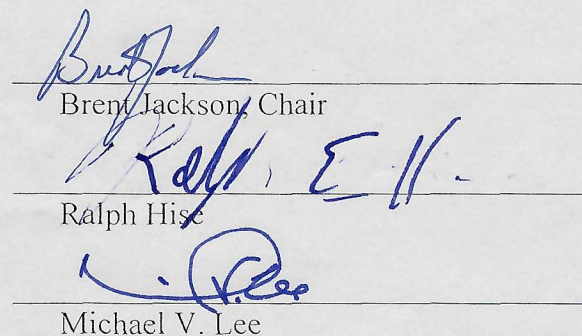 Brent Jackson
Brent Jackson, Chair
Ralph E. H.
Ralph Hise
V. Lee
Michael V. Lee